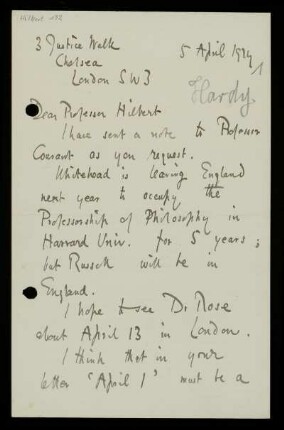 Hilbert 132
3 Justice Walk
Chelsea
London SW3
5 April 1924
Hardy
Dear Professor Hilbert
I have sent a note to Professor
Courant as you request.
Whitehead is leaving England
next year to occupy the
Professorship of Philosophy in
Harvard Univ. for 5 years;
but Russell will be in
England.
I hope to see Dr Rose
about April 13 in London.
I think that in your
letter "April 1" must be a